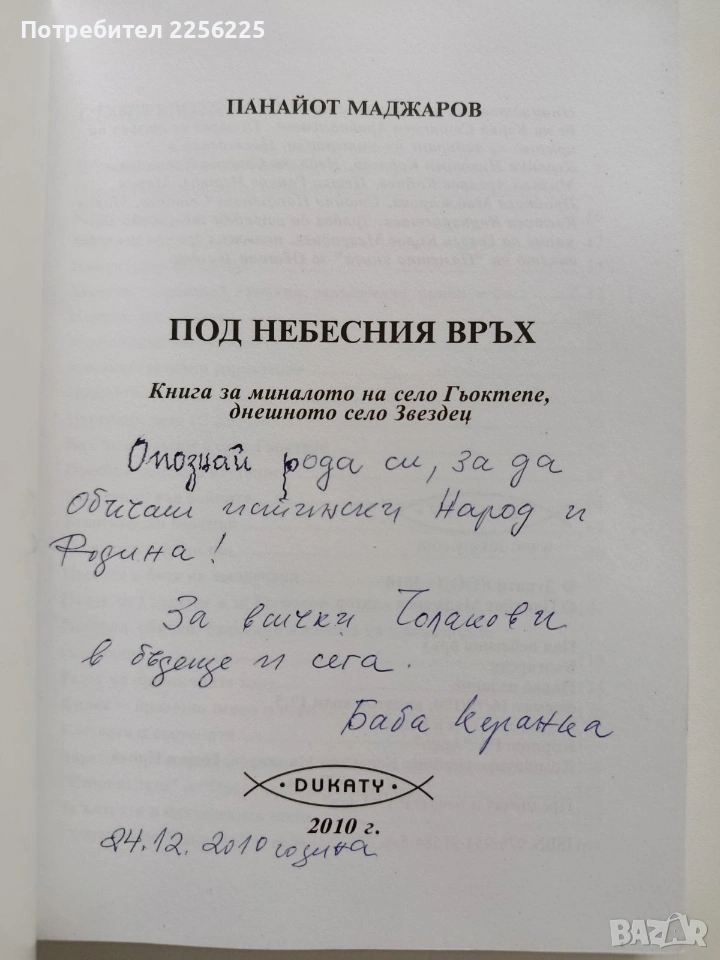 Потребител 2256225
ПАНАЙОТ МАДЖАРОВ
ПОД НЕБЕСНИЯ ВРЪХ
Книга за миналото на село Гьоктепе,
днешното село Звездец
Опознай рода си, за да
Обичаш истински Народ и
Родина!
За всички Чолакови
в бъдеще и сега.
Баба Керанка
DUKATY
2010 г.
24.12.2010 година
BAZAR